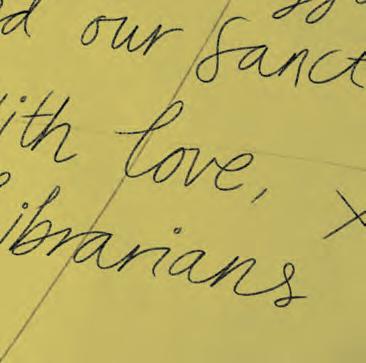 d our Sanct
ith love, x
ibrarians